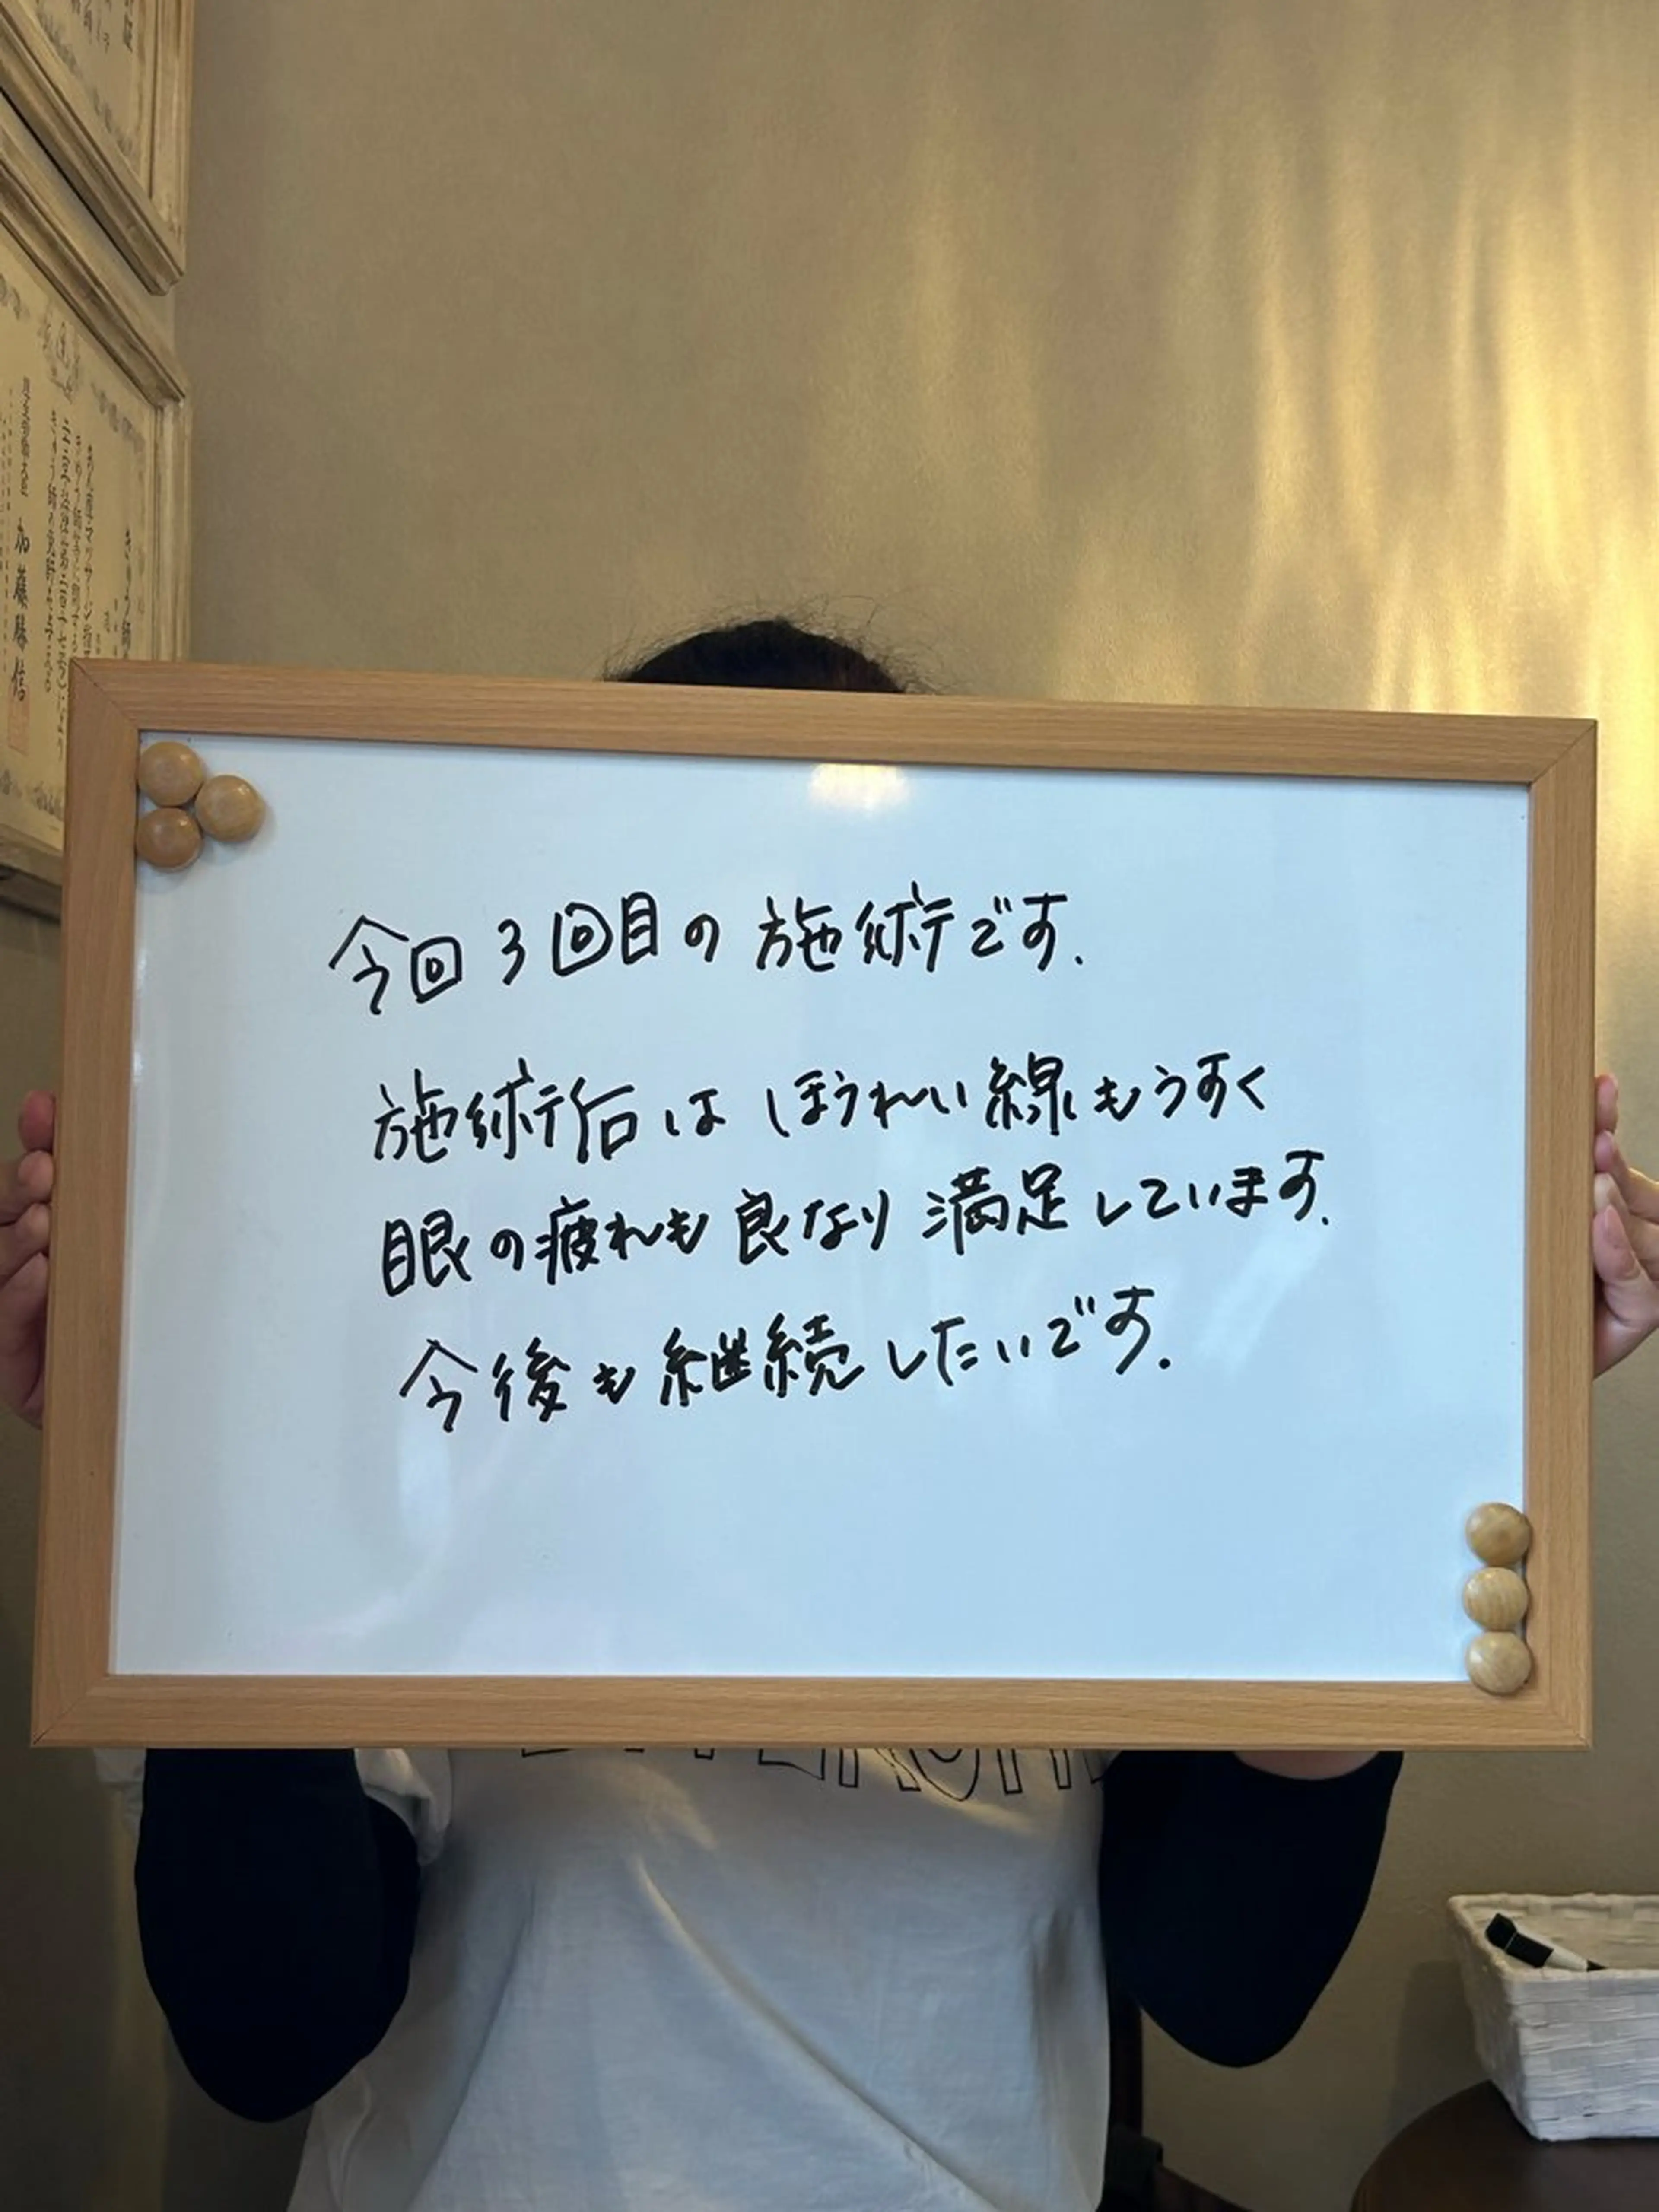 今回3回目の施術です.
施術后は ほうれい線もうすく
眼の疲れも良なり満足しています.
今後も継続したいです.
きゅう師
加藤勝信